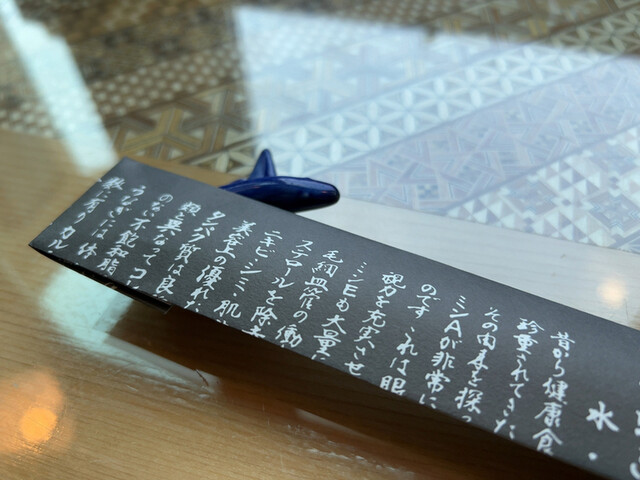 水・
昔から健康食
珍重されてきた
その内容を探っ
ミンAが非常に
のです これは眼
視力を充実させ
ミンEも大量に
毛細血管の働
ステロールを除去
ニキビ シミ 肌
美容上の優れた
タンパク質は良
類と異なって コレ
のない不飽和脂
うなぎには 体
骸に有り カル